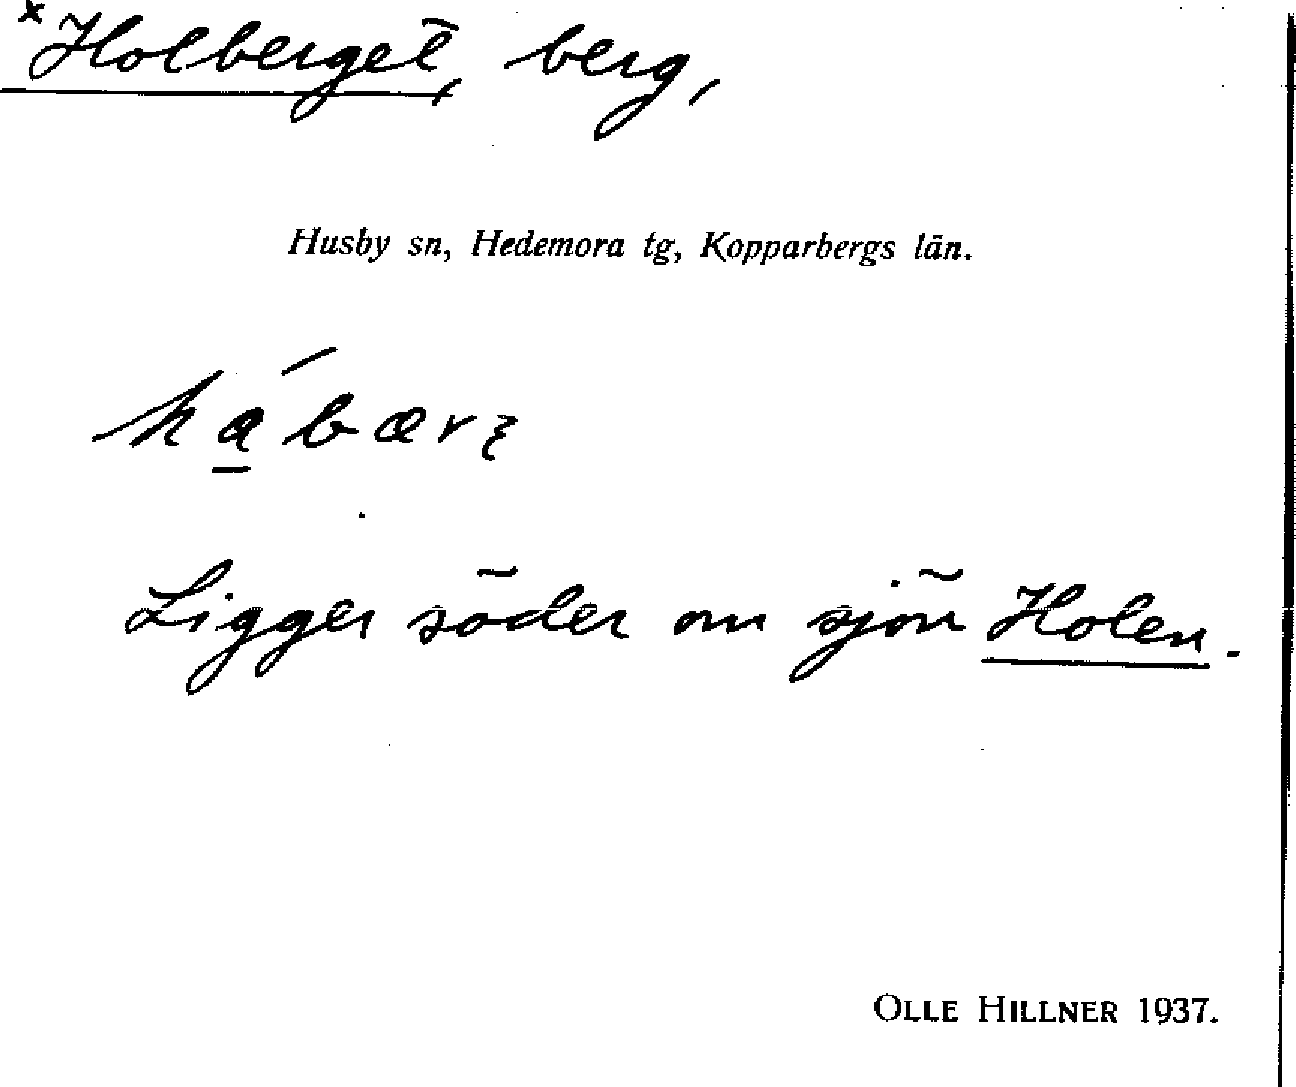 *Holberget, berg,
Husby sn, Hedemora tg, Kopparbergs län.
Ligger söder om sjön Holen.
OLLE HILLNER 1937.